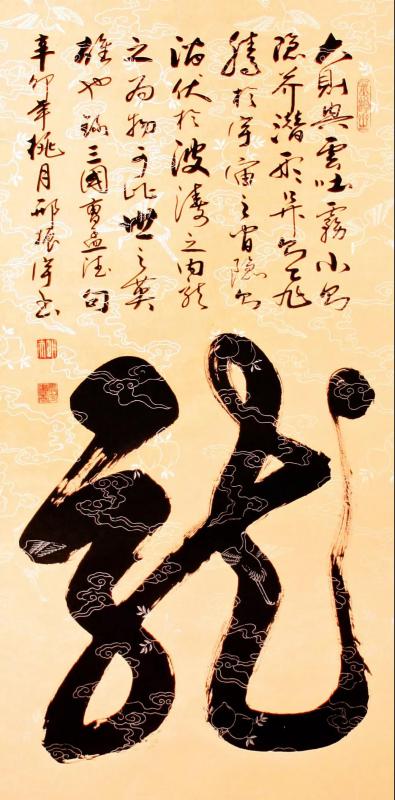 大則興雲吐霧小則
隐芥潜形昇則飛
騰於宇宙之間隐則
潜伏於波濤之内龍
之為物可比世之英
雄也録三國曹孟德句
辛卯年桃月邢振書
龍